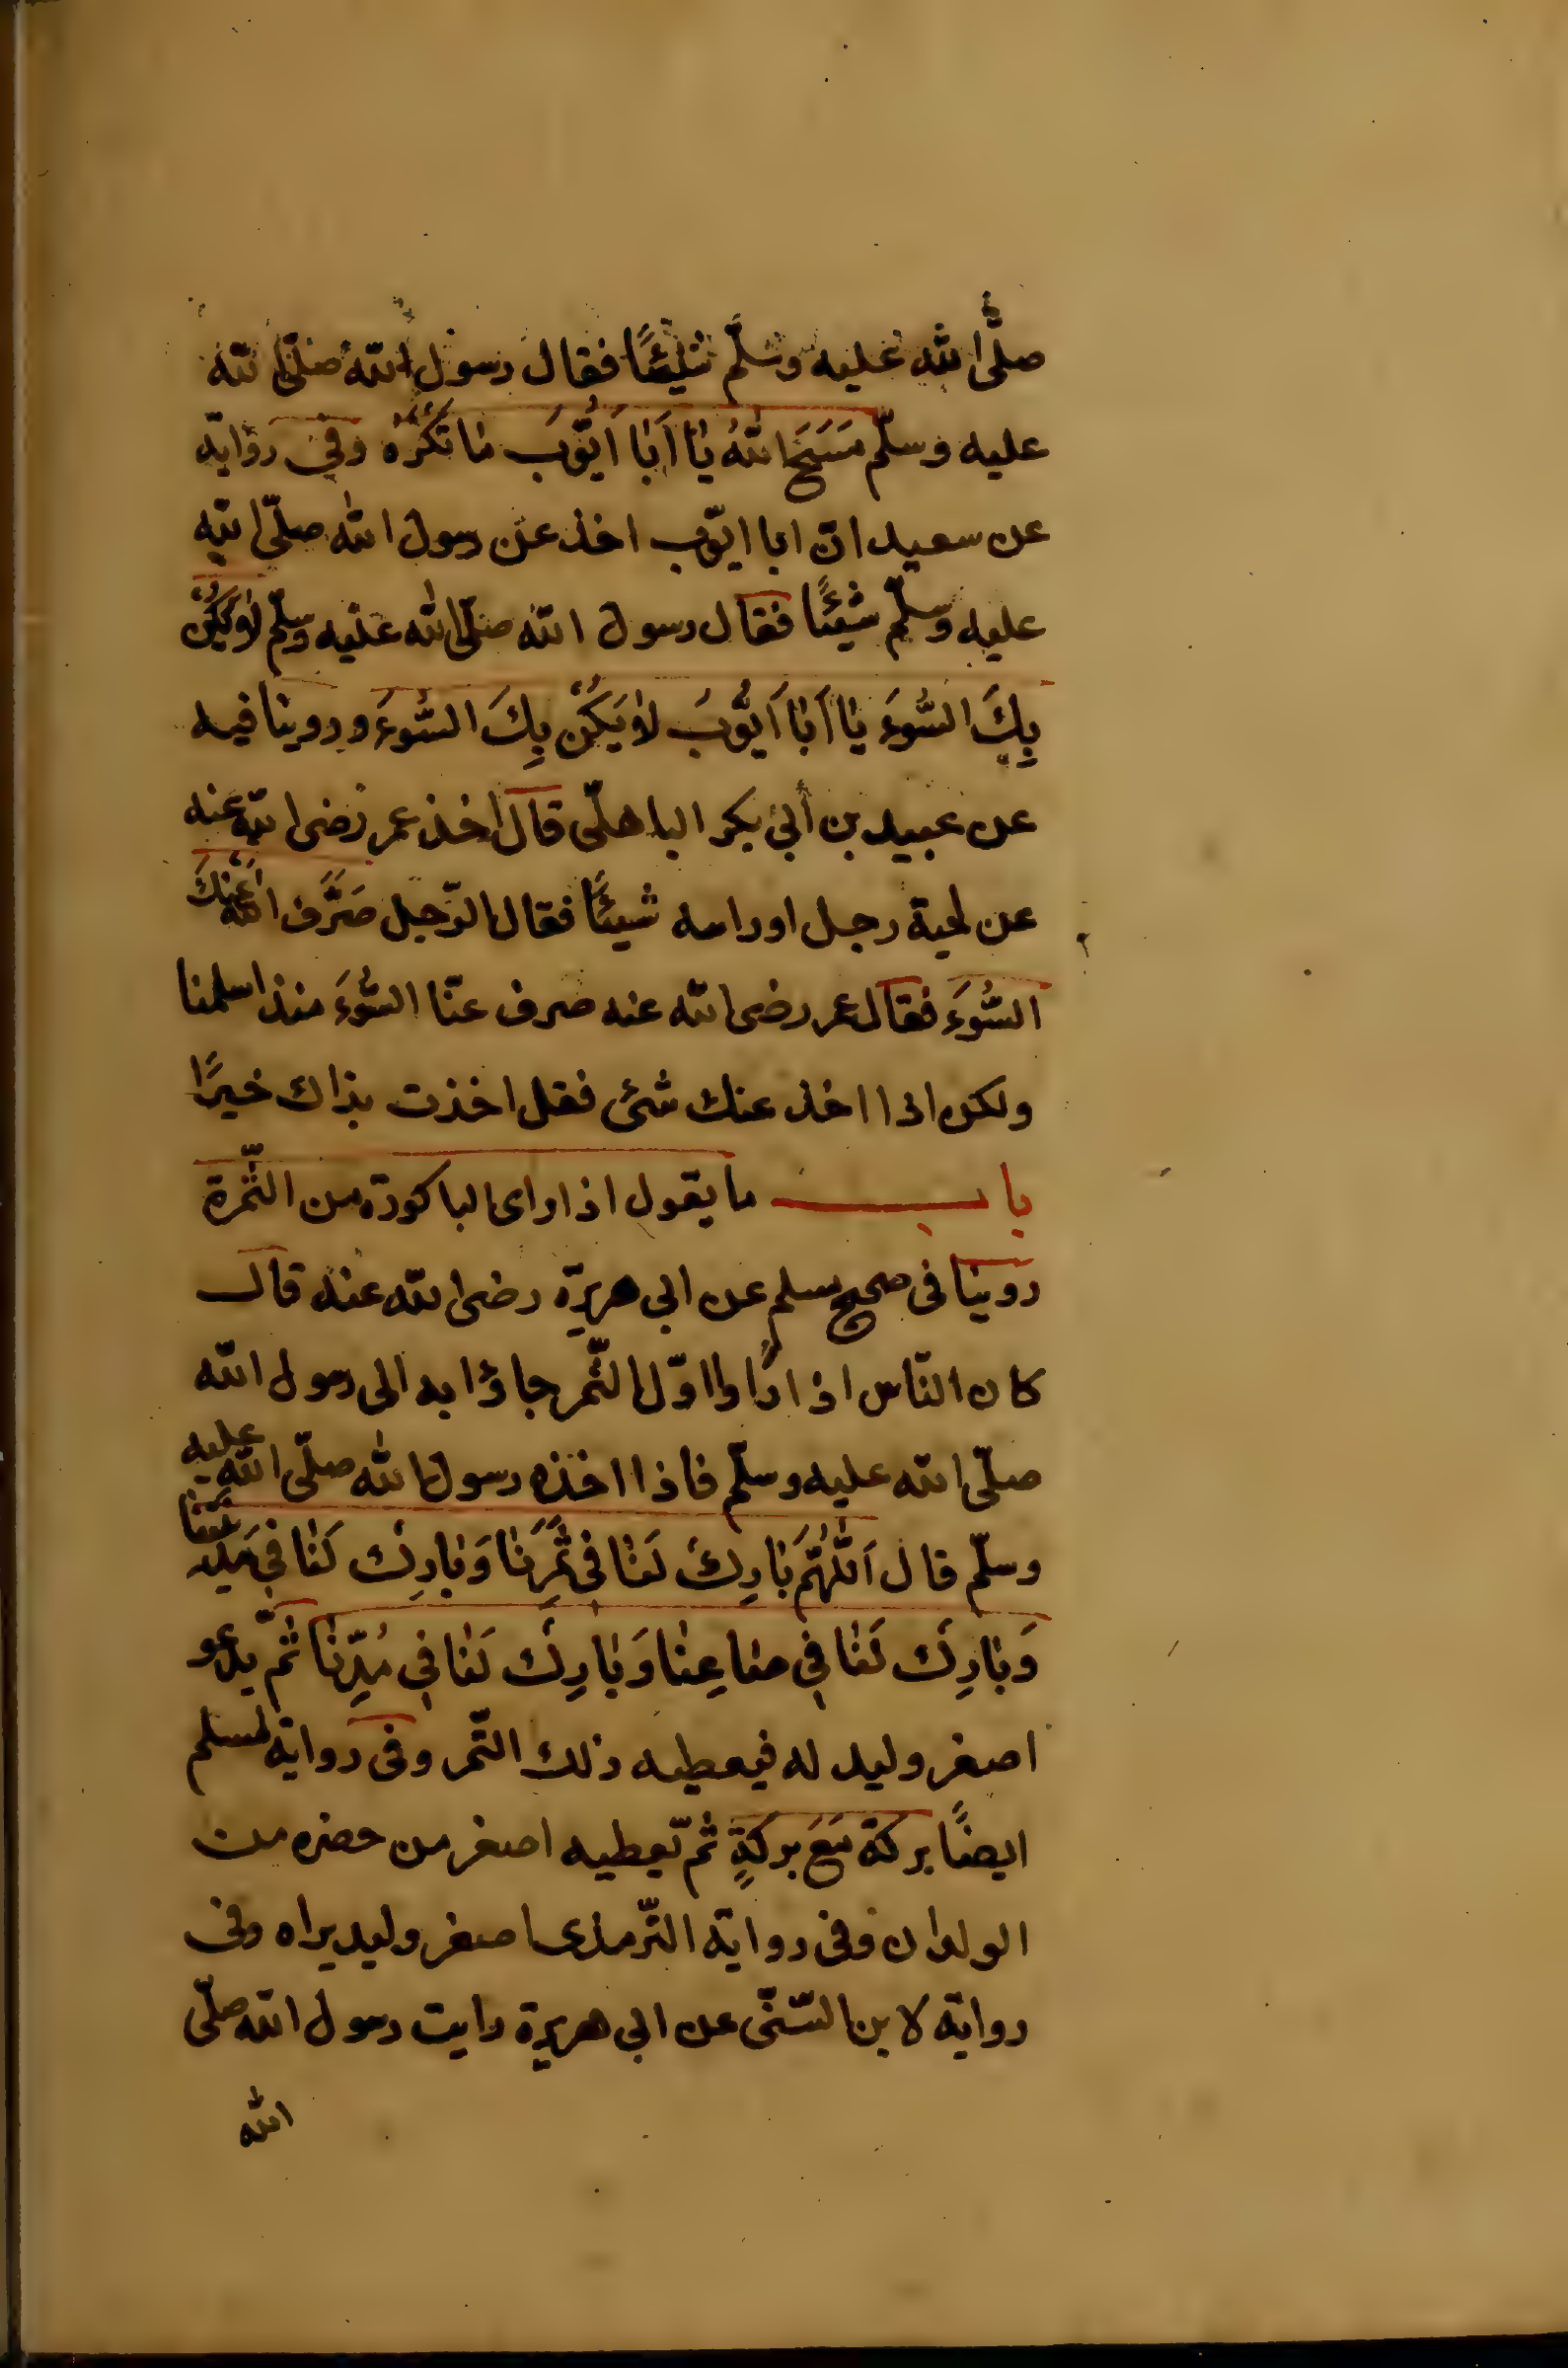 صلّى الله عليه وسلّم شيئًا فقال رسول الله صلّى الله
عليه وسلّم مَسَحَ اللهُ يَا اَبَا اَيُّوبَ مَا تَكْرَهُ وفى رواية
عن سعيد انّ ابا ايّوب اخذ عن رسول الله صلّى الله
عليه وسلّم شيئًا فقال رسول الله صلّى الله عليه وسلّم لَا يَكُنْ
بِكَ السُّوءَ يَا اَبَا اَيُّوبَ لَا يَكُنْ بِكَ السُّوءَ وروينا فيه
عن عبيد بن أبى بكر الباهلّى قال اخذ عمر رضى الله عنه
عن لحية رجل او راسه شيئًا فقال الرّجل صَرَّف الله عَنْكَ
السُّوءَ فقال عمر رضى الله عنه صرف عنّا السُّوءَ منذ اسلمنا
ولكن اذا اخذ عنك شئ فقل اخذت يداك خيرًا
باب ما يقول اذا راى الباكورة من الثّمرة
روينا فى صحيح مسلم عن ابى هريرة رضى الله عنه قال
كان النّاس اذا رأوا اوّل الثّمر جاؤا به الى رسول الله
صلّى الله عليه وسلّم فاذا اخذه رسول الله صلّى الله عليه
وسلّم قال اَللّٰهُمَّ بَارِكْ لَنَا فى ثَمَرِنَا وَبَارِكْ لَنَا فِى مَدِيْنَتِنَا
وَبَارِكْ لَنَا فِى صَاعِنَا وَبَارِكْ لَنَا فِى مُدِّنَا ثمّ يدعو
اصغر وليد له فيعطيه ذلك الثّمر وفى رواية لمسلم
ايضًا بركة مَعَ بركةٍ ثم يعطيه اصغر من حضره من
الولدان وفى رواية التّرمذى اصغر وليد يراه وفى
رواية لابن السّنّى عن ابى هريرة رايت رسول الله صلّى
الله